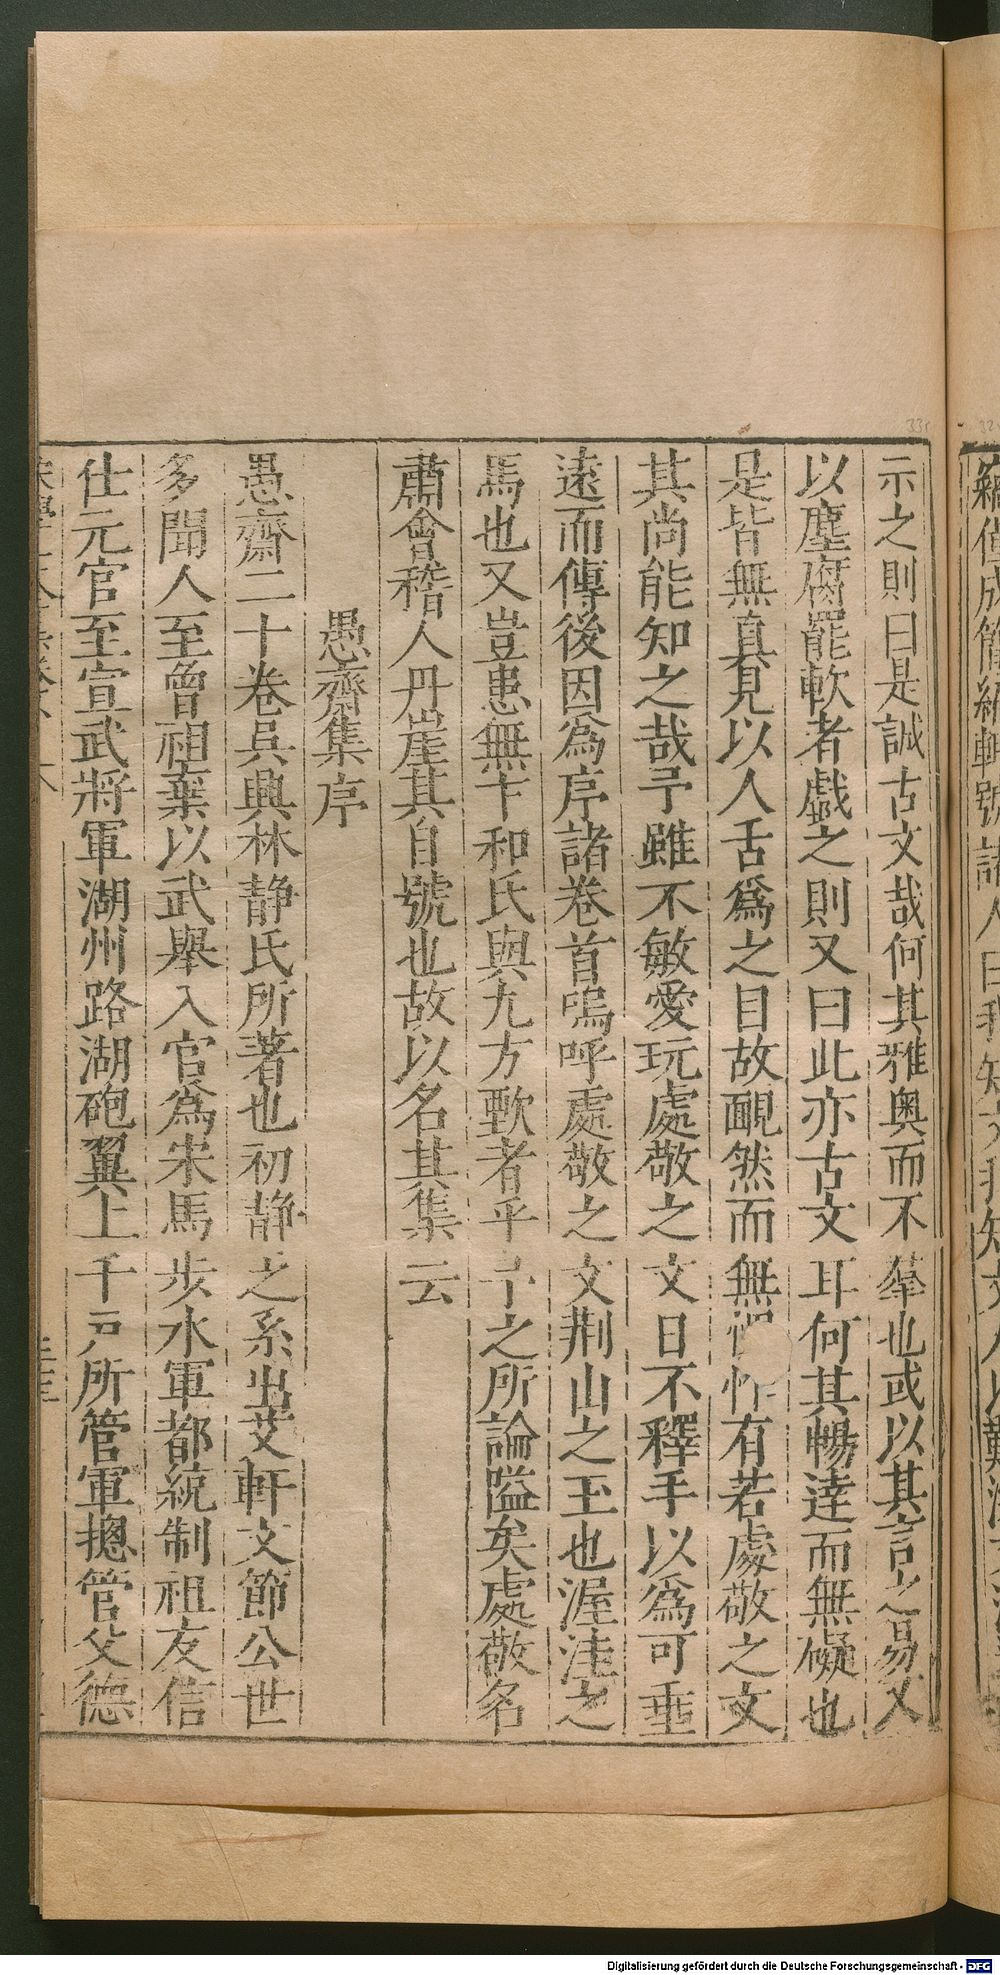 示之則曰是誠古文哉何其雅奥而不羣也或以其言之易又
以塵腐罷軟者戲之則又曰此亦古文耳何其暢逹而無礙也
是皆無真見以人舌爲之目故靦然而無怍有若處敬之文
其尚能知之哉予雖不敏愛玩處敬之文日不釋手以爲可垂
遠而傳後因爲序諸卷首嗚呼處敬之文荆山之玉也渥洼之
馬也又豈患無卞和氏與九方歅者乎予之所論嗌矣處敬名
肅會稽人丹崖其自號也故以名其集云
愚齋集序
愚齋二十卷吳興林静氏所著也初静之系出艾軒文節公世
多聞人至曾祖棄以武舉入官爲宋馬步水軍都統制祖友信
仕元官至宣武將軍湖州路湖砲翼上千戸所管軍摠管父德
Digitalisierung gefördert durch die Deutsche Forschungsgemeinschaft - DFG